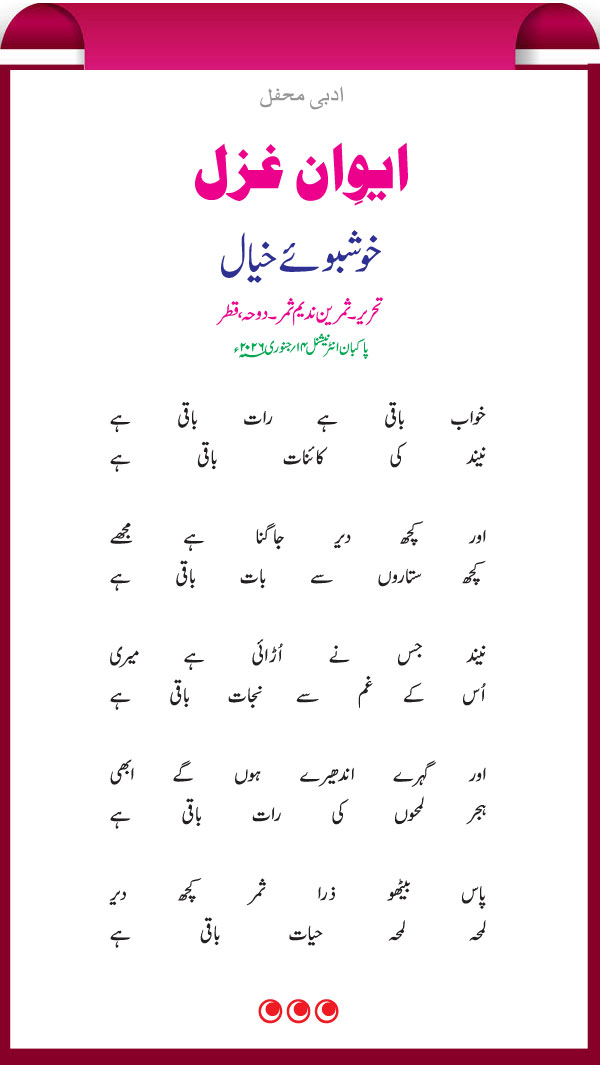 ادبی محفل
ایوانِ غزل
خوشبوئے خیال
تحریر۔ثمرین ندیم ثمر۔دوحہ، قطر
پاکبان انٹرنیشنل ۱۴؍ جنوری ۲۰۲۶ء
خواب باقی ہے رات باقی ہے
نیند کی کائنات باقی ہے
اور کچھ دیر جاگنا ہے مجھے
کچھ ستاروں سے بات باقی ہے
نیند جس نے اُڑائی ہے میری
اُس کے غم سے نجات باقی ہے
اور گہرے اندھیرے ہوں گے ابھی
ہجر لمحوں کی رات باقی ہے
پاس بیٹھو ذرا ثمر کچھ دیر
لمحہ لمحہ حیات باقی ہے